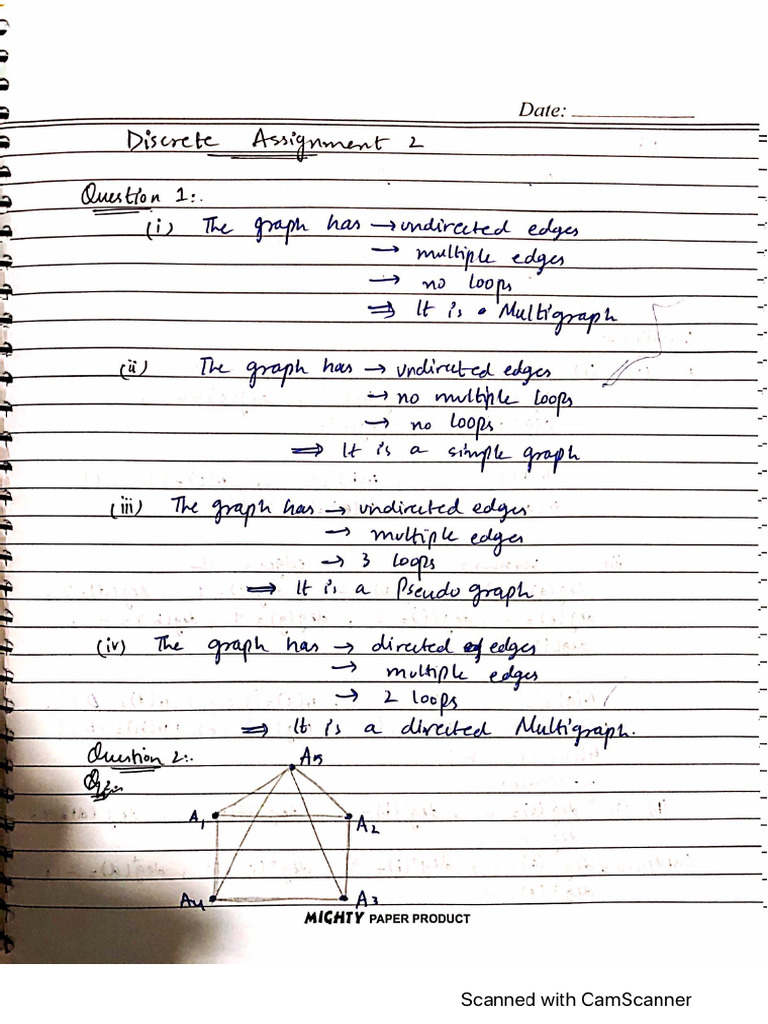 Date:
Discrete Assignment 2
Question 1:.
(i) The graph has → undirected edges
→ multiple edges
→ no loops
⇒ It is • Multigraph
(ii) The graph has → undirected edges
→ no multiple loops
→ no loops.
⇒ It is a simple graph
(iii) The graph has → undirected edges
→ multiple edges
→ 3 loops
⇒ It is a Pseudo graph
(iv) The graph has → directed edges
→ multiple edges
→ 2 loops
⇒ It is a directed Multigraph.
Question 2:.
A5
A1
A2
A4
A3
MIGHTY PAPER PRODUCT
Scanned with CamScanner